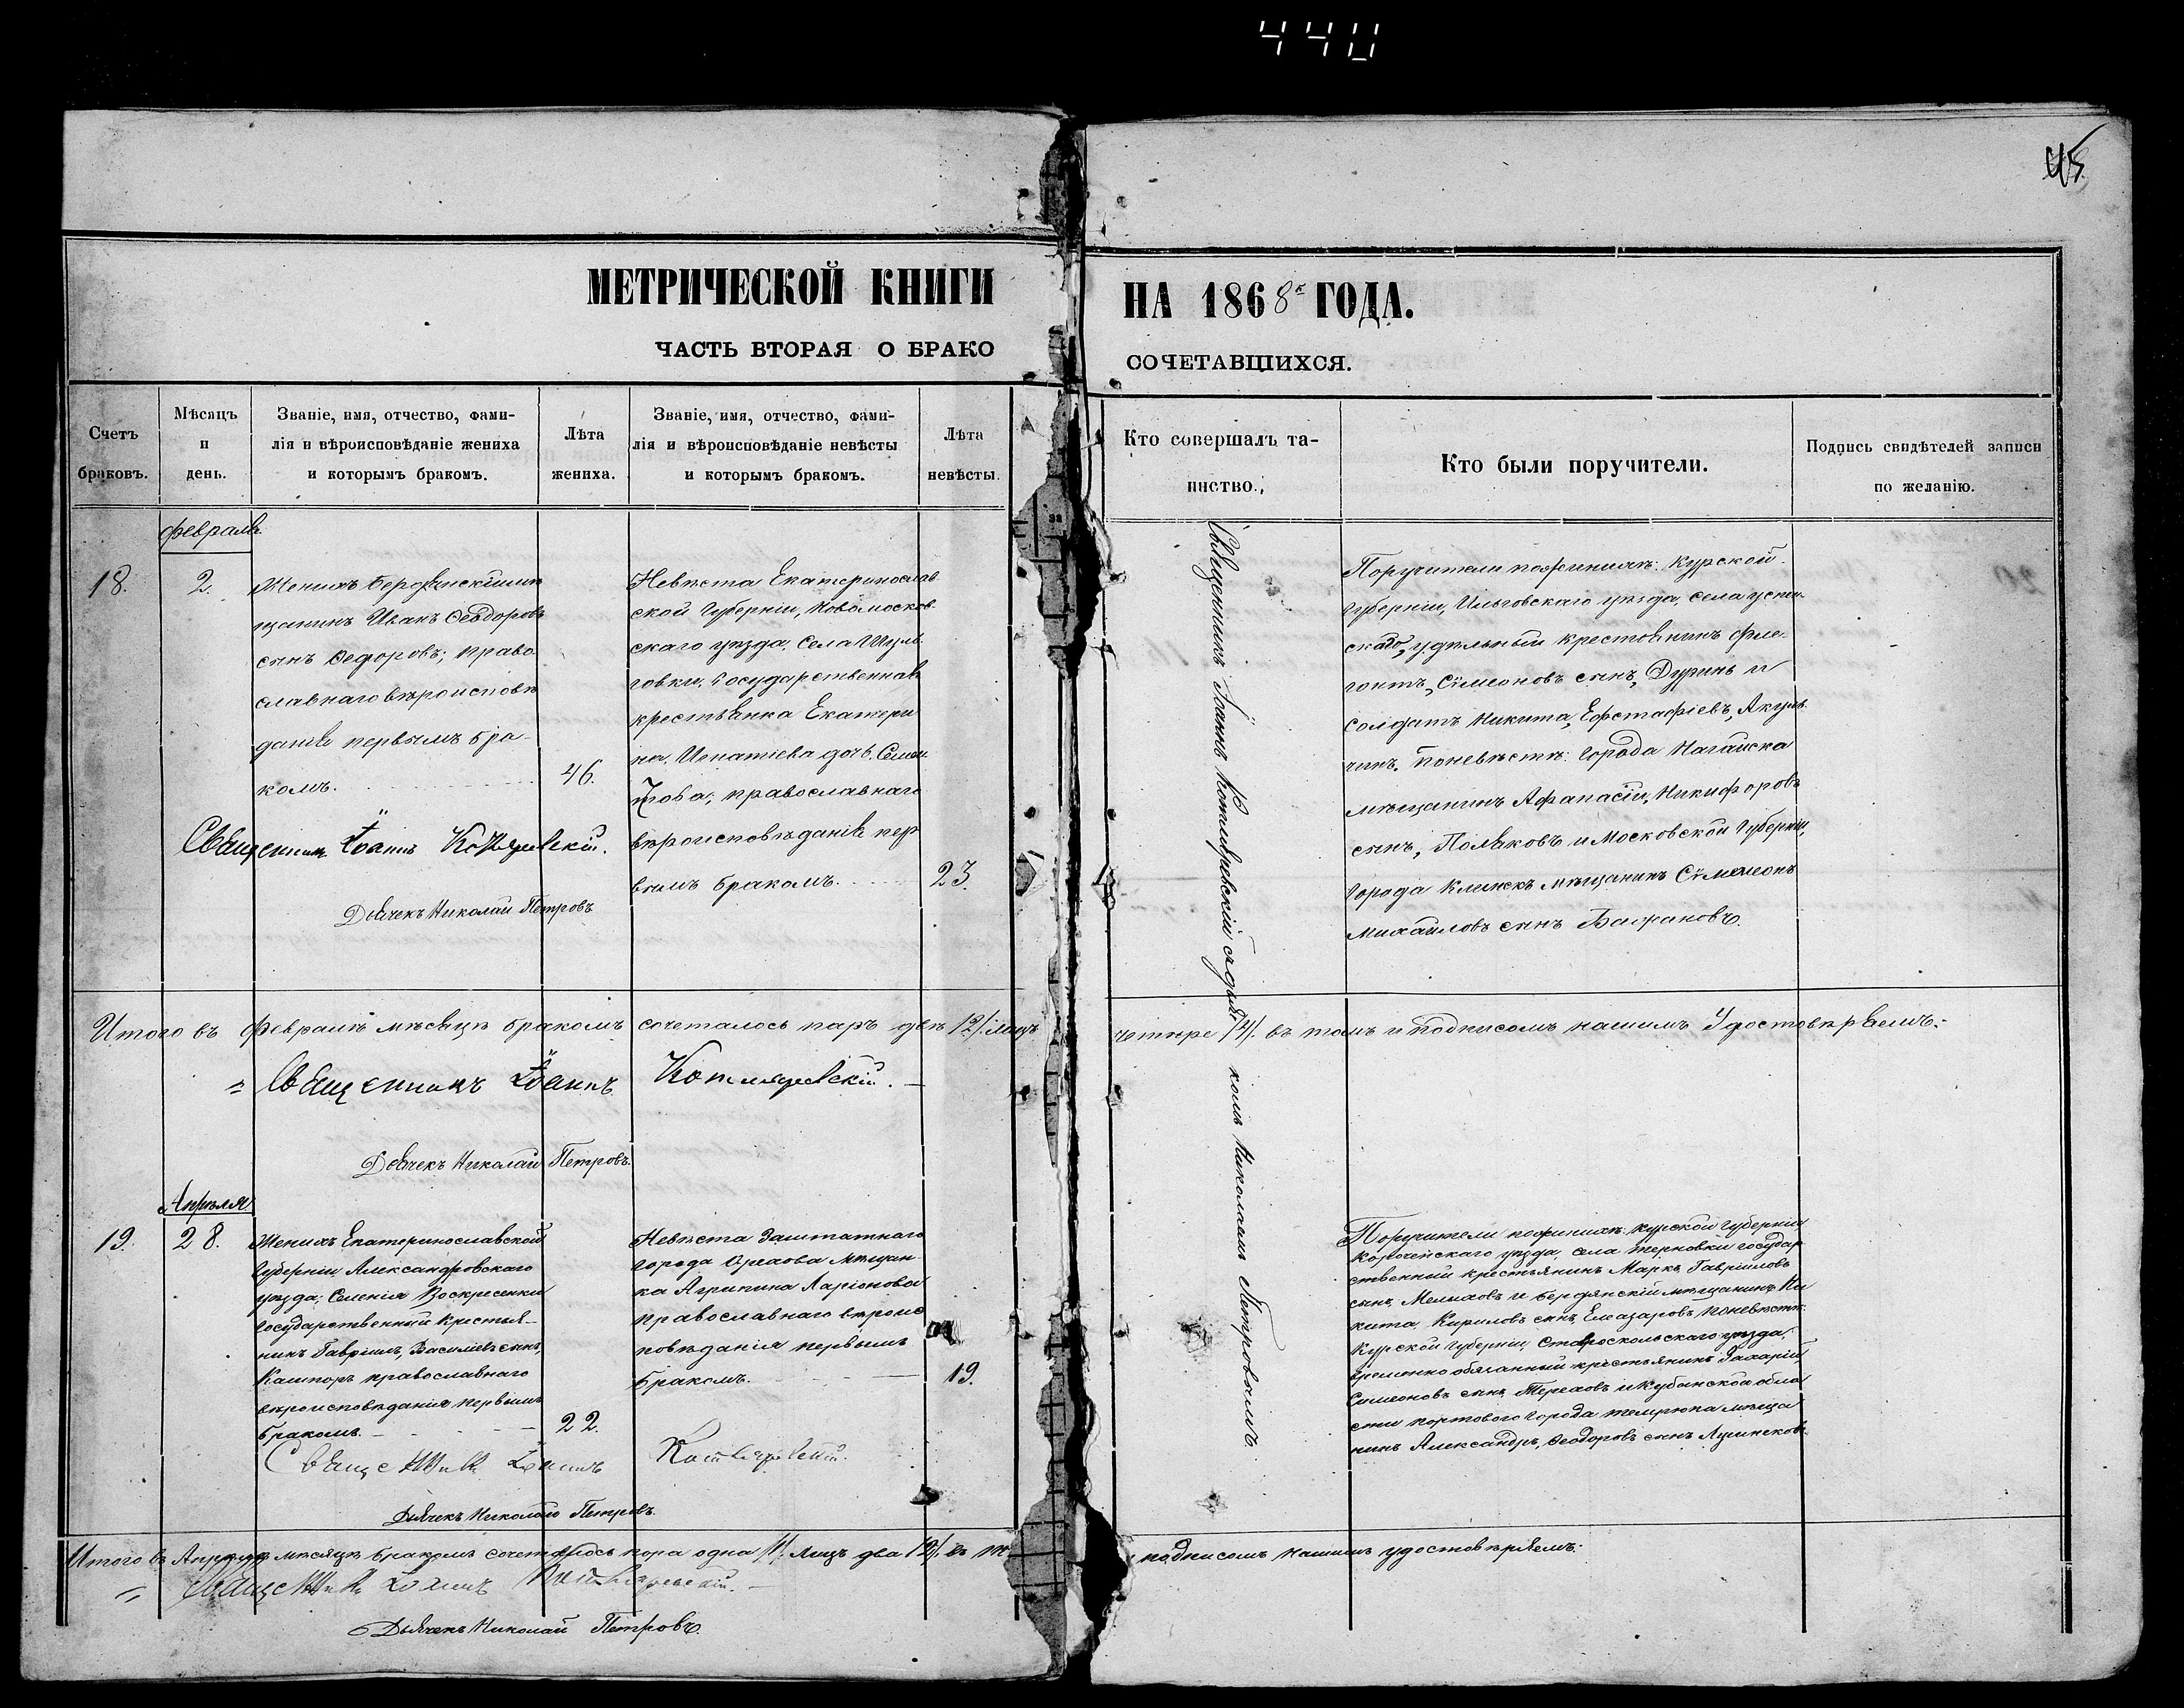 440
45.
МЕТРИЧЕСКОЙ КНИГИ
НА 1868 ГОДА.
ЧАСТЬ ВТОРАЯ О БРАКО
СОЧЕТАВШИХСЯ.
Счетъ
браковъ.
Мѣсяцъ
и
день.
Званіе, имя, отчество, фами-
лія и вѣроисповѣданіе жениха
и которымъ бракомъ.
Лѣта
жениха.
Званіе, имя, отчество, фами-
лія и вѣроисповѣданіе невѣсты
и которымъ бракомъ.
Лѣта
невѣсты.
Кто совершалъ та-
инство.
Кто были поручители.
Подпись свидѣтелей записи
по желанію.
февраля
18.
2.
Женихъ Бердянскій мѣ
щанинъ Иванъ Ѳеодоровъ
сынъ Ѳедоровъ; право
славнаго вѣроисповѣ
данія первымъ бра-
комъ.
46.
Невѣста Екатеринослав
ской Губерніи, Новомосков
скаго уѣзда, села
говки, Государственная
крестьянка Екатери
на, Игнатіева дочь,
православнаго
вѣроисповѣданія пер
вымъ бракомъ.
23.
Священникъ Іоаннъ Котляревскій.
Дьячекъ Николай Петровъ
Священникъ Іоаннъ Котляревскій съ дьяч
комъ Николаемъ Петровымъ.
Поручители по женихѣ: Курской
Губерніи, Льговскаго уѣзда, села
удѣльный крестьянинъ
Сѵмеоновъ сынъ, Дуринъ и
солдатъ Никита, Евстафіевъ, Акуль
чинъ. по невѣстѣ: города Нагайска
мѣщанинъ Афанасій, Никифоровъ
сынъ, Поляковъ и Московской Губерніи,
города мѣщанинъ Сѵмеонъ
Михайловъ сынъ
Итого въ февралѣ мѣсяцѣ бракомъ сочеталось паръ двѣ /2/. лицъ четыре /4/. въ томъ и подписомъ нашимъ удостовѣряемъ:
Священникъ Іоаннъ Котляревскій.
Дьячекъ Николай Петровъ.
Апрѣля
19.
28.
Женихъ Екатеринославской
Губерніи Александровскаго
уѣзда, Селенія Воскресенки
Государственный Крестья-
нинъ Гавріилъ, Василіевъ сынъ,
православнаго
вѣроисповѣданія первымъ
бракомъ.
22.
Невѣста Заштатнаго
города Орехова Мѣщан
ка Агрипина Ларіонова
православнаго вѣроис
повѣданія первымъ
бракомъ.
19.
Священникъ Іоаннъ Котляревскій.
Дьячекъ Николай Петровъ.
Поручители по женихѣ: Курской Губерніи
Корочанскаго уѣзда, села Терновки государ
ственный крестьянинъ Маркъ Гавріиловъ
сынъ, Мелиховъ и бердянскій мѣщанинъ Ни
кита Кириловъ сынъ, Елеазаровъ. по невѣстѣ:
Курской Губерніи, Старооскольскаго уѣзда,
временно обязанный крестьянинъ Захарій
Симеоновъ сынъ, Тереховъ и Кубанской обла
сти портового города Темрюка мѣща
нинъ Александръ, Ѳеодоровъ сынъ
Итого въ Апрѣлѣ мѣсяцѣ бракомъ сочеталось пара одна /1/. лицъ два /2/. въ
подписомъ нашимъ удостовѣряемъ:
Священникъ Іоаннъ Котляревскій.
Дьячекъ Николай Петровъ.